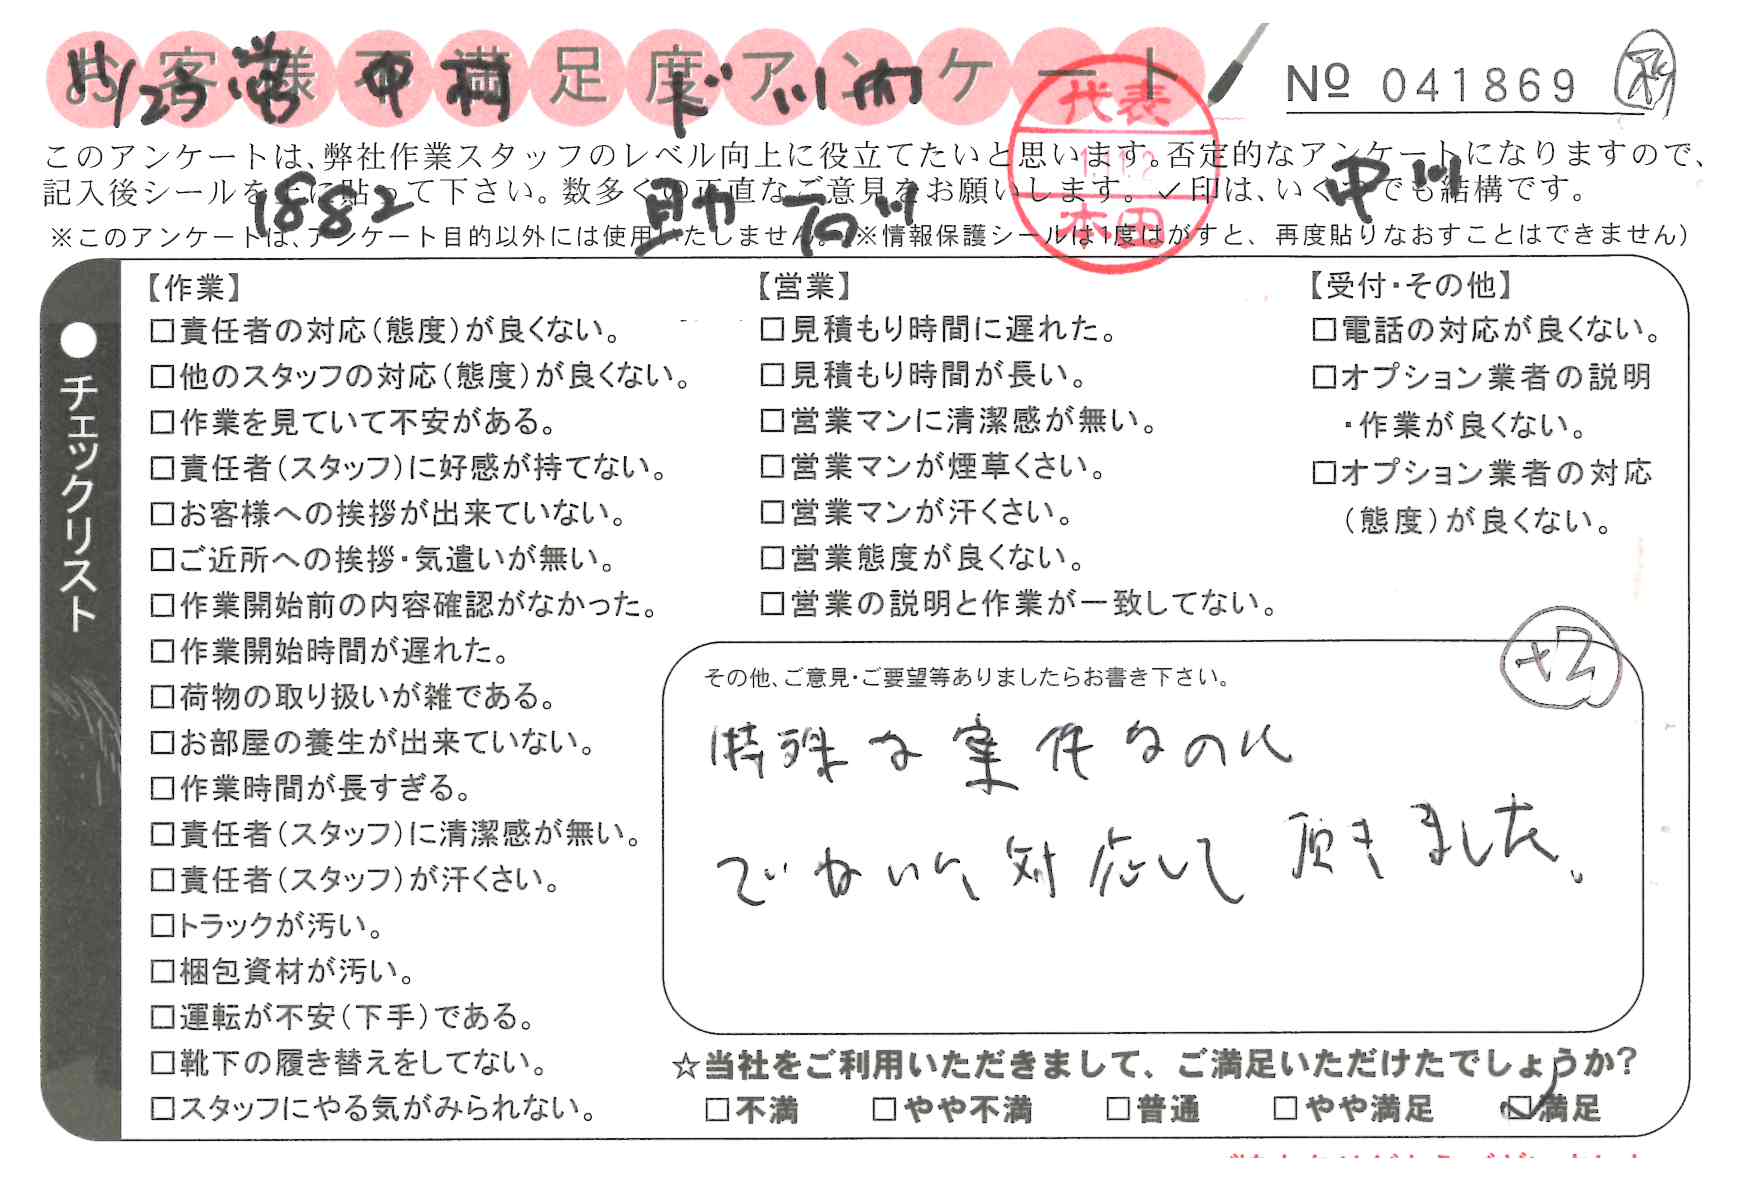 お客様不満足度アンケート
№ 041869
11/23 営 中村 ド 川内
このアンケートは、弊社作業スタッフのレベル向上に役立てたいと思います。否定的なアンケートになりますので、
記入後シールを上に貼って下さい。数多くの正直なご意見をお願いします。✓印は、いくつでも結構です。
1882 助 石川 中川
代表
11.12
本田
※このアンケートは、アンケート目的以外には使用いたしません。(※情報保護シールは1度はがすと、再度貼りなおすことはできません)
●チェックリスト
【作業】
□責任者の対応(態度)が良くない。
□他のスタッフの対応(態度)が良くない。
□作業を見ていて不安がある。
□責任者(スタッフ)に好感が持てない。
□お客様への挨拶が出来ていない。
□ご近所への挨拶・気遣いが無い。
□作業開始前の内容確認がなかった。
□作業開始時間が遅れた。
□荷物の取り扱いが雑である。
□お部屋の養生が出来ていない。
□作業時間が長すぎる。
□責任者(スタッフ)に清潔感が無い。
□責任者(スタッフ)が汗くさい。
□トラックが汚い。
□梱包資材が汚い。
□運転が不安(下手)である。
□靴下の履き替えをしてない。
□スタッフにやる気がみられない。
【営業】
□見積もり時間に遅れた。
□見積もり時間が長い。
□営業マンに清潔感が無い。
□営業マンが煙草くさい。
□営業マンが汗くさい。
□営業態度が良くない。
□営業の説明と作業が一致してない。
【受付・その他】
□電話の対応が良くない。
□オプション業者の説明
・作業が良くない。
□オプション業者の対応
(態度)が良くない。
その他、ご意見・ご要望等ありましたらお書き下さい。
+2
特殊な案件なのに
ていねいに対応して頂きました。
☆当社をご利用いただきまして、ご満足いただけたでしょうか?
□不満 □やや不満 □普通 □やや満足 ☑満足